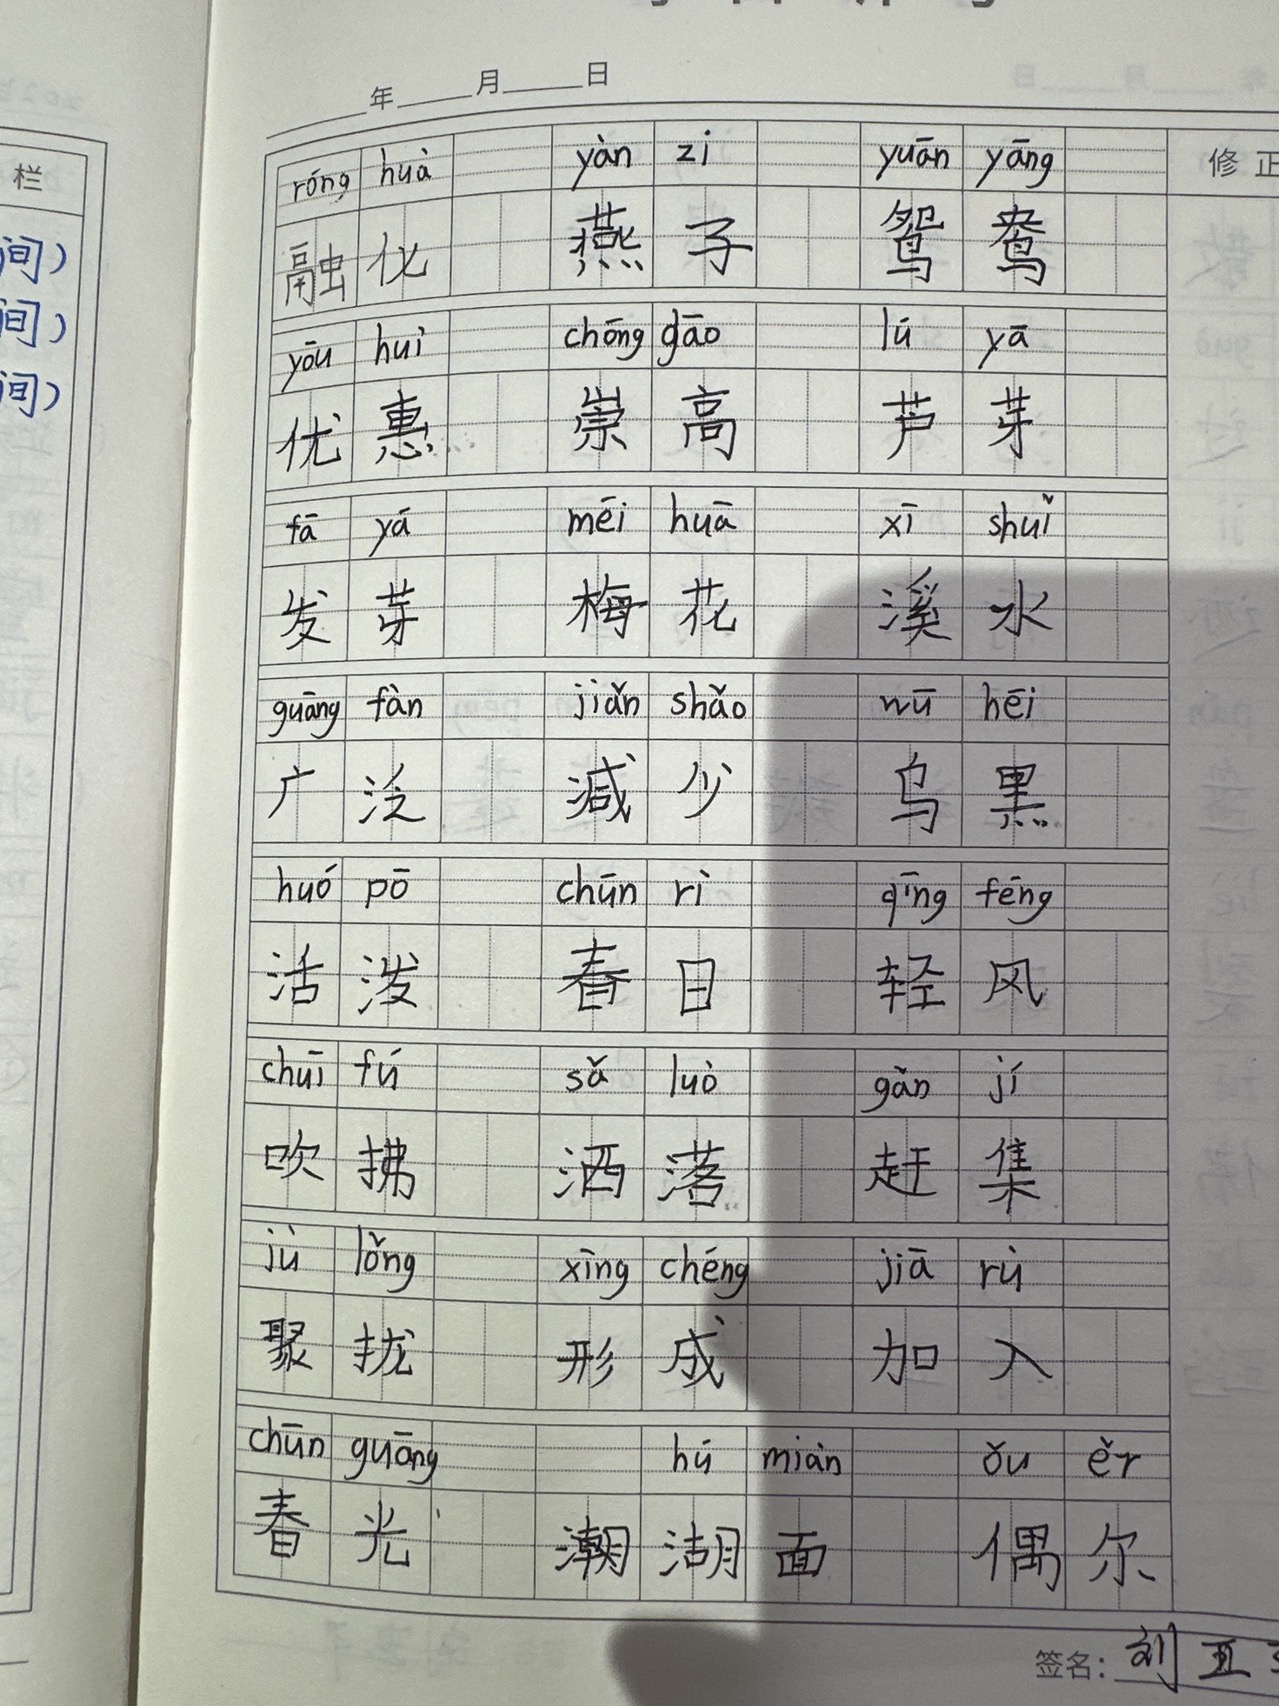 年 月 日
栏
间）
间）
间）
róng huà yàn zi yuān yāng 修正
融化 燕子 鸳鸯
yōu huì chóng gāo lú yá
优惠 崇高 芦芽
fā yá méi huā xī shuǐ
发芽 梅花 溪水
guāng fàn jiǎn shǎo wū hēi
广泛 减少 乌黑
huó pō chūn rì qīng fēng
活泼 春日 轻风
chuī fú sǎ luò gǎn jí
吹拂 洒落 赶集
jù lǒng xīng chéng jiā rù
聚拢 形成 加入
chūn guāng hú miàn ǒu ěr
春光 潮湖面 偶尔
签名：刘